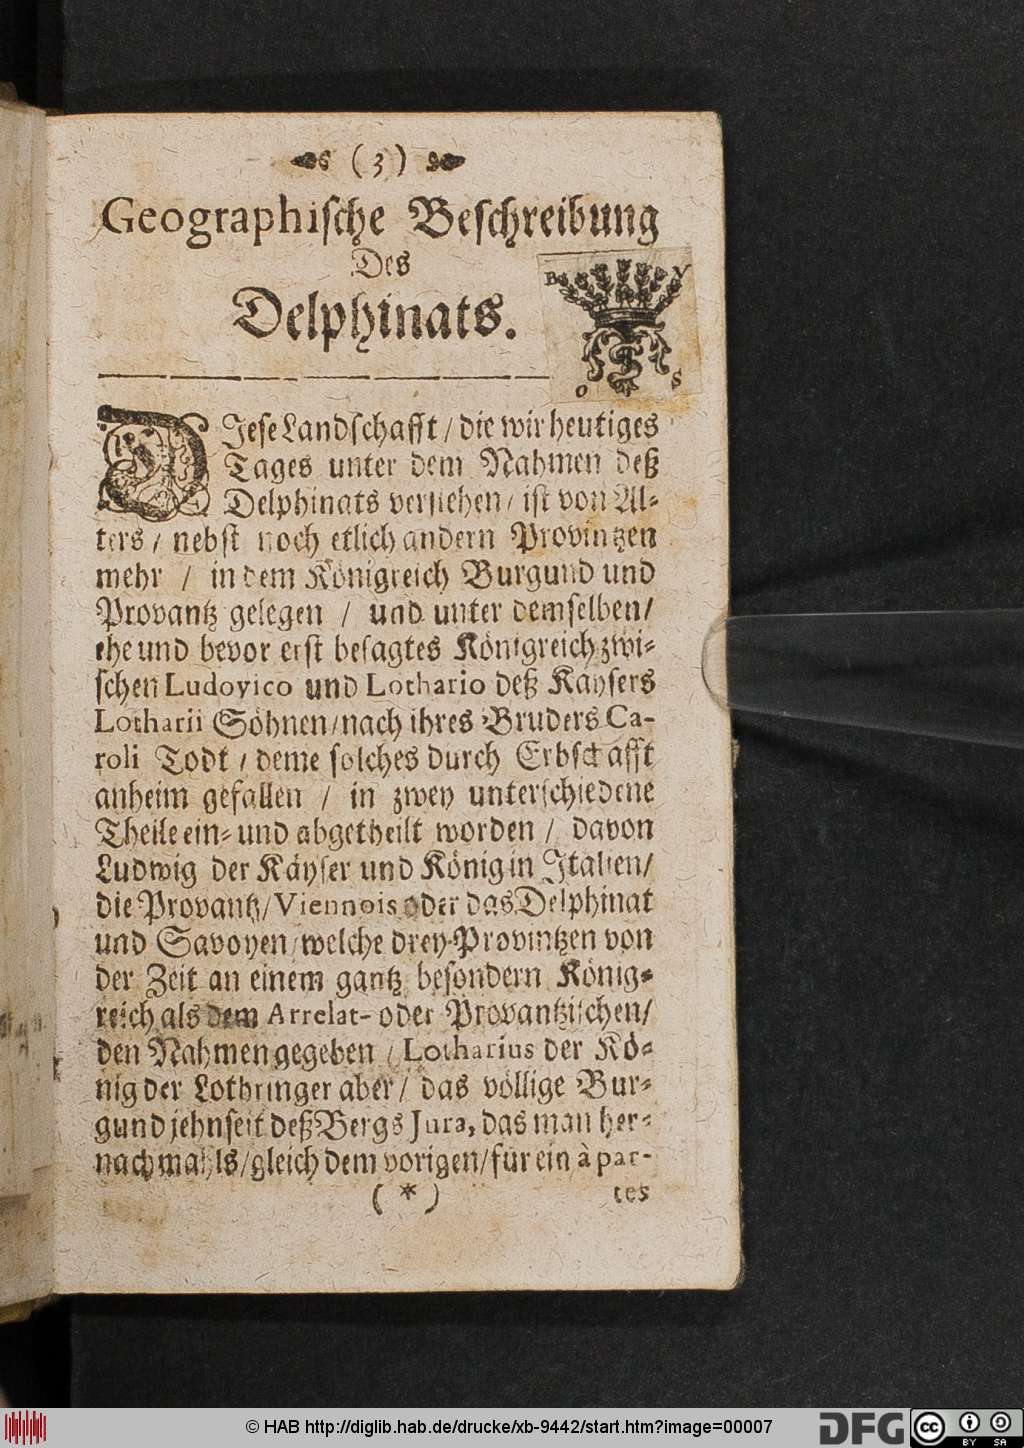 (3)
Geographische Beschreibung
Des
Delphinats.
B Y
O S
DIese Landschafft / die wir heutiges
Tages unter dem Nahmen deß
Delphinats verstehen / ist von Al-
ters / nebst noch etlich andern Provintzen
mehr / in dem Königreich Burgund und
Provantz gelegen / und unter demselben /
ehe und bevor erst besagtes Königreich zwi-
schen Ludovico und Lothario deß Kaysers
Lotharii Söhnen / nach ihres Bruders Ca-
roli Todt / deme solches durch Erbschafft
anheim gefallen / in zwey unterschiedene
Theile ein- und abgetheilt worden / davon
Ludwig der Käyser und König in Italien /
die Provantz / Viennois oder das Delphinat
und Savoyen / welche drey Provintzen von
der Zeit an einem gantz besondern König-
reich als dem Arrelat- oder Provantzischen /
den Nahmen gegeben / Lotharius der Kö-
nig der Lothringer aber / das völlige Bur-
gund jehnseit deß Bergs Jura, das man her-
nachmahls / gleich dem vorigen / für ein à par-
(*) tes
© HAB http://diglib.hab.de/drucke/xb-9442/start.htm?image=00007
DFG
cc BY SA